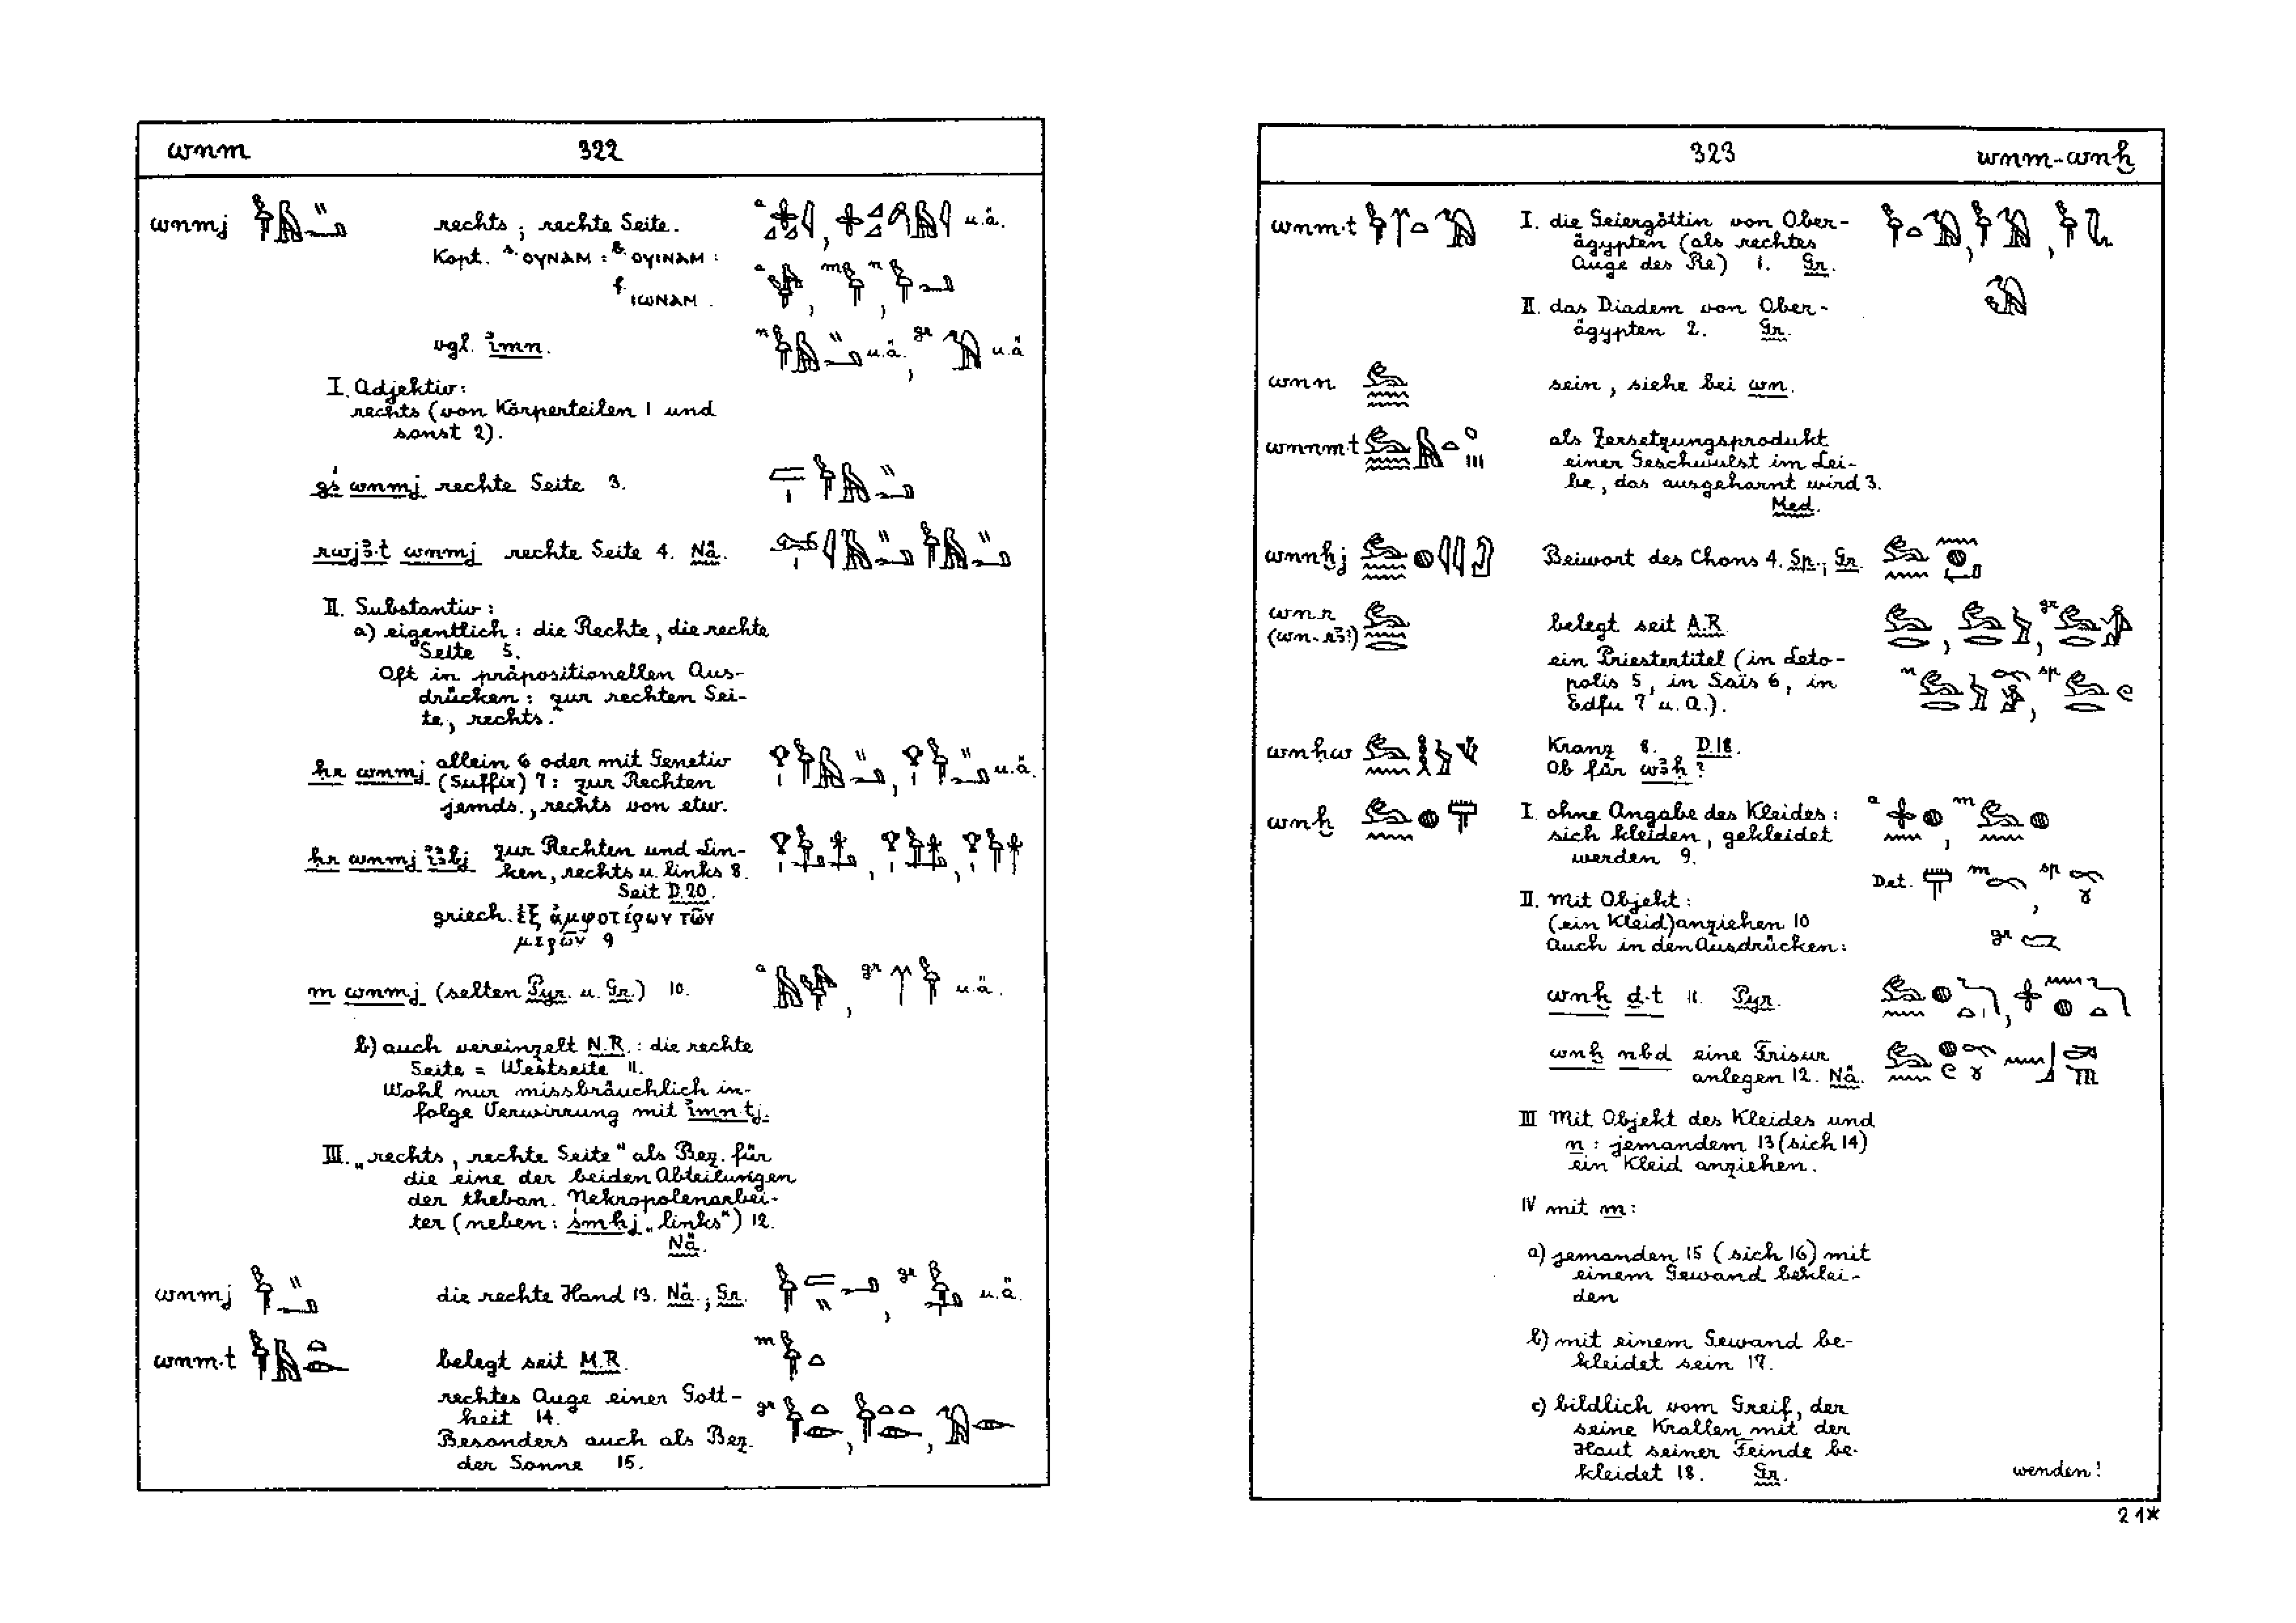 wnm 322
wnmj rechts ; rechte Seite. u.ä.
Kopt. ⲟⲩⲛⲁⲙ : ⲟⲩⲓⲛⲁⲙ :
f ⲓⲱⲛⲁⲙ .
vgl. i҆mn. u.ä., gr u.ä
I. Adjektiv:
rechts (von Körperteilen 1 und
sonst 2).
gś wnmj rechte Seite 3.
rwjꜣ·t wnmj rechte Seite 4. Nä.
II. Substantiv:
a) eigentlich : die Rechte, die rechte
Seite 5.
Oft in präpositionellen Aus-
drücken : zur rechten Sei-
te, rechts.
ḥr wnmj allein 6 oder mit Genetiv
(Suffix) 7 : zur Rechten
jemds., rechts von etw.
u.ä.
ḥr wnmj i҆ꜣbj zur Rechten und Lin-
ken, rechts u. links 8.
Seit D.20.
griech. ἐξ ἀμφοτέρων τῶν
μερῶν 9
m wnmj (selten Pyr. u. Gr.) 10. a , gr u.ä.
b) auch vereinzelt N.R. : die rechte
Seite = Westseite 11.
Wohl nur missbräuchlich in-
folge Verwirrung mit i҆mn·tj.
III. „rechts, rechte Seite" als Bez. für
die eine der beiden Abteilungen
der theban. Nekropolenarbei-
ter (neben : śmḥj „links") 12.
Nä.
wnmj die rechte Hand 13. Nä.; Gr. gr u.ä.
wnm·t belegt seit M.R. m
rechtes Auge einer Gott-
heit 14. gr
Besonders auch als Bez.
der Sonne 15.
323 wnm-wnḫ
wnm·t I. die Geiergöttin von Ober-
ägypten (als rechtes
Auge des Re) 1. Gr.
II. das Diadem von Ober-
ägypten 2. Gr.
wnn sein, siehe bei wn.
wnnm·t als Zersetzungsprodukt
einer Geschwulst im Lei-
be, das ausgeharnt wird 3.
Med.
wnnḫj Beiwort des Chons 4. Sp.; Gr.
wn.r
(wn-rꜣ?) belegt seit A.R. gr
ein Priestertitel (in Leto-
polis 5, in Saïs 6, in m sp
Edfu 7 u. a.).
wnḥw Kranz 8. D.18.
Ob für wꜣḥ ?
wnḫ I. ohne Angabe des Kleides : a , m
sich kleiden, gekleidet
werden 9.
Det. , m , sp
II. Mit Objekt :
(ein Kleid) anziehen 10 gr
Auch in den Ausdrücken :
wnḫ ḏ·t 11. Pyr.
wnḫ nbd eine Frisur
anlegen 12. Nä.
III Mit Objekt des Kleides und
n : jemandem 13 (sich 14)
ein Kleid anziehen.
IV mit m :
a) jemanden 15 (sich 16) mit
einem Gewand beklei-
den
b) mit einem Gewand be-
kleidet sein 17.
c) bildlich vom Greif, der
seine Krallen mit der
Haut seiner Feinde be-
kleidet 18. Gr. wenden !
21*